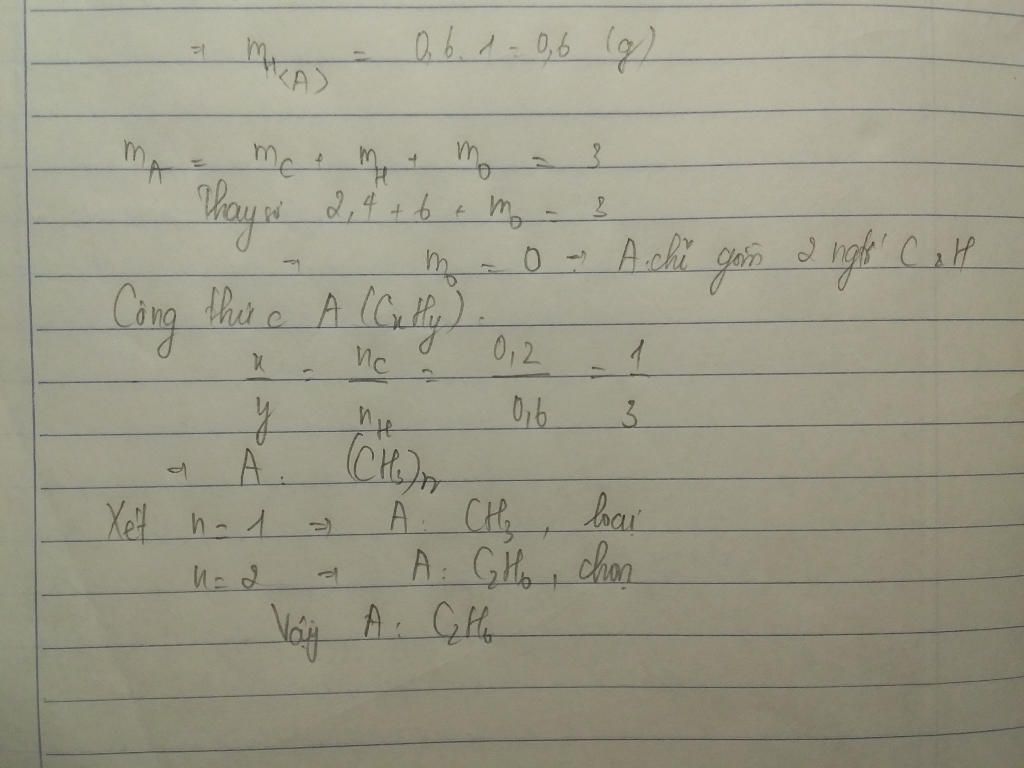 ⇒ m_H(A) = 0,6.1 = 0,6 (g)
m_A = m_C + m_H + m_O = 3
Thay số 2,4 + 6 + m_O = 3
→ m_O = 0 → A chỉ gồm 2 ngtố C, H
Công thức A (CxHy).
x/y = n_C/n_H = 0,2/0,6 = 1/3
⇒ A: (CH3)n
Xét n = 1 ⇒ A: CH3, loại
n = 2 ⇒ A: C2H6, chọn
Vậy A: C2H6